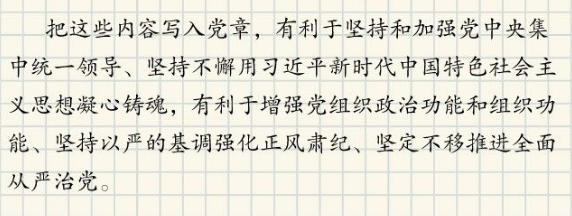 把这些内容写入党章，有利于坚持和加强党中央集
中统一领导、坚持不懈用习近平新时代中国特色社会主
义思想凝心铸魂，有利于增强党组织政治功能和组织功
能、坚持以严的基调强化正风肃纪、坚定不移推进全面
从严治党。